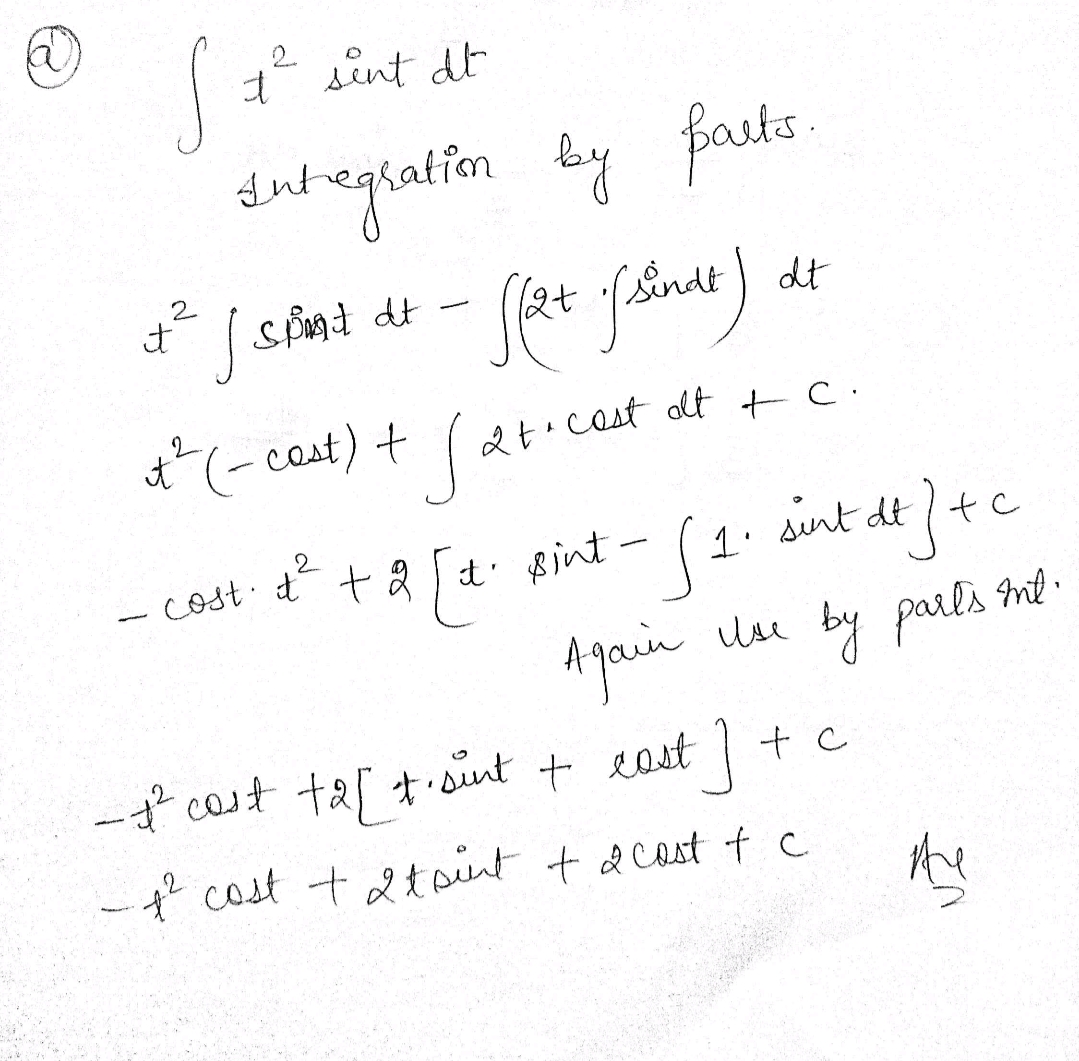 (a) ∫ t² sint dt
Integration by parts.
t² ∫ sint dt − ∫(2t · ∫sindt) dt
t² (− cost) + ∫ 2t · cost dt + c .
− cost · t² + 2 [ t · sint − ∫ 1 · sint dt ] + c
Again Use by parts Int.
− t² cost + 2[ t · sint + cost ] + c
− t² cost + 2tsint + 2cost + c